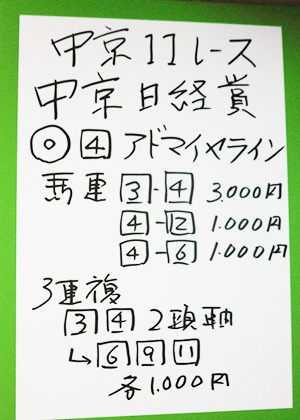 中京11レース
中京日経賞
◎ 4 アドマイヤライン
馬連 3-4 3,000円
4-12 1,000円
4-6 1,000円
3連複
3 4 2頭軸
↳ 6 9 11
各1,000円